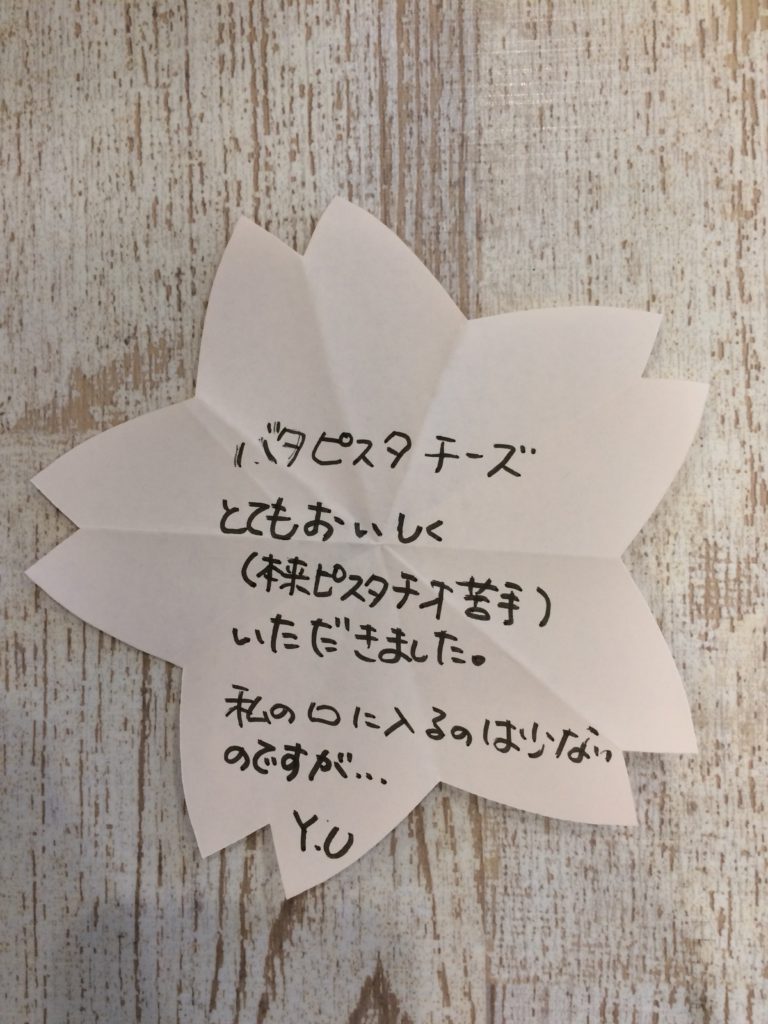 バタピスタチーズ
とてもおいしく
(本来ピスタチオ苦手)
いただきました。
私の口に入るのは少ない
のですが...
Y.U